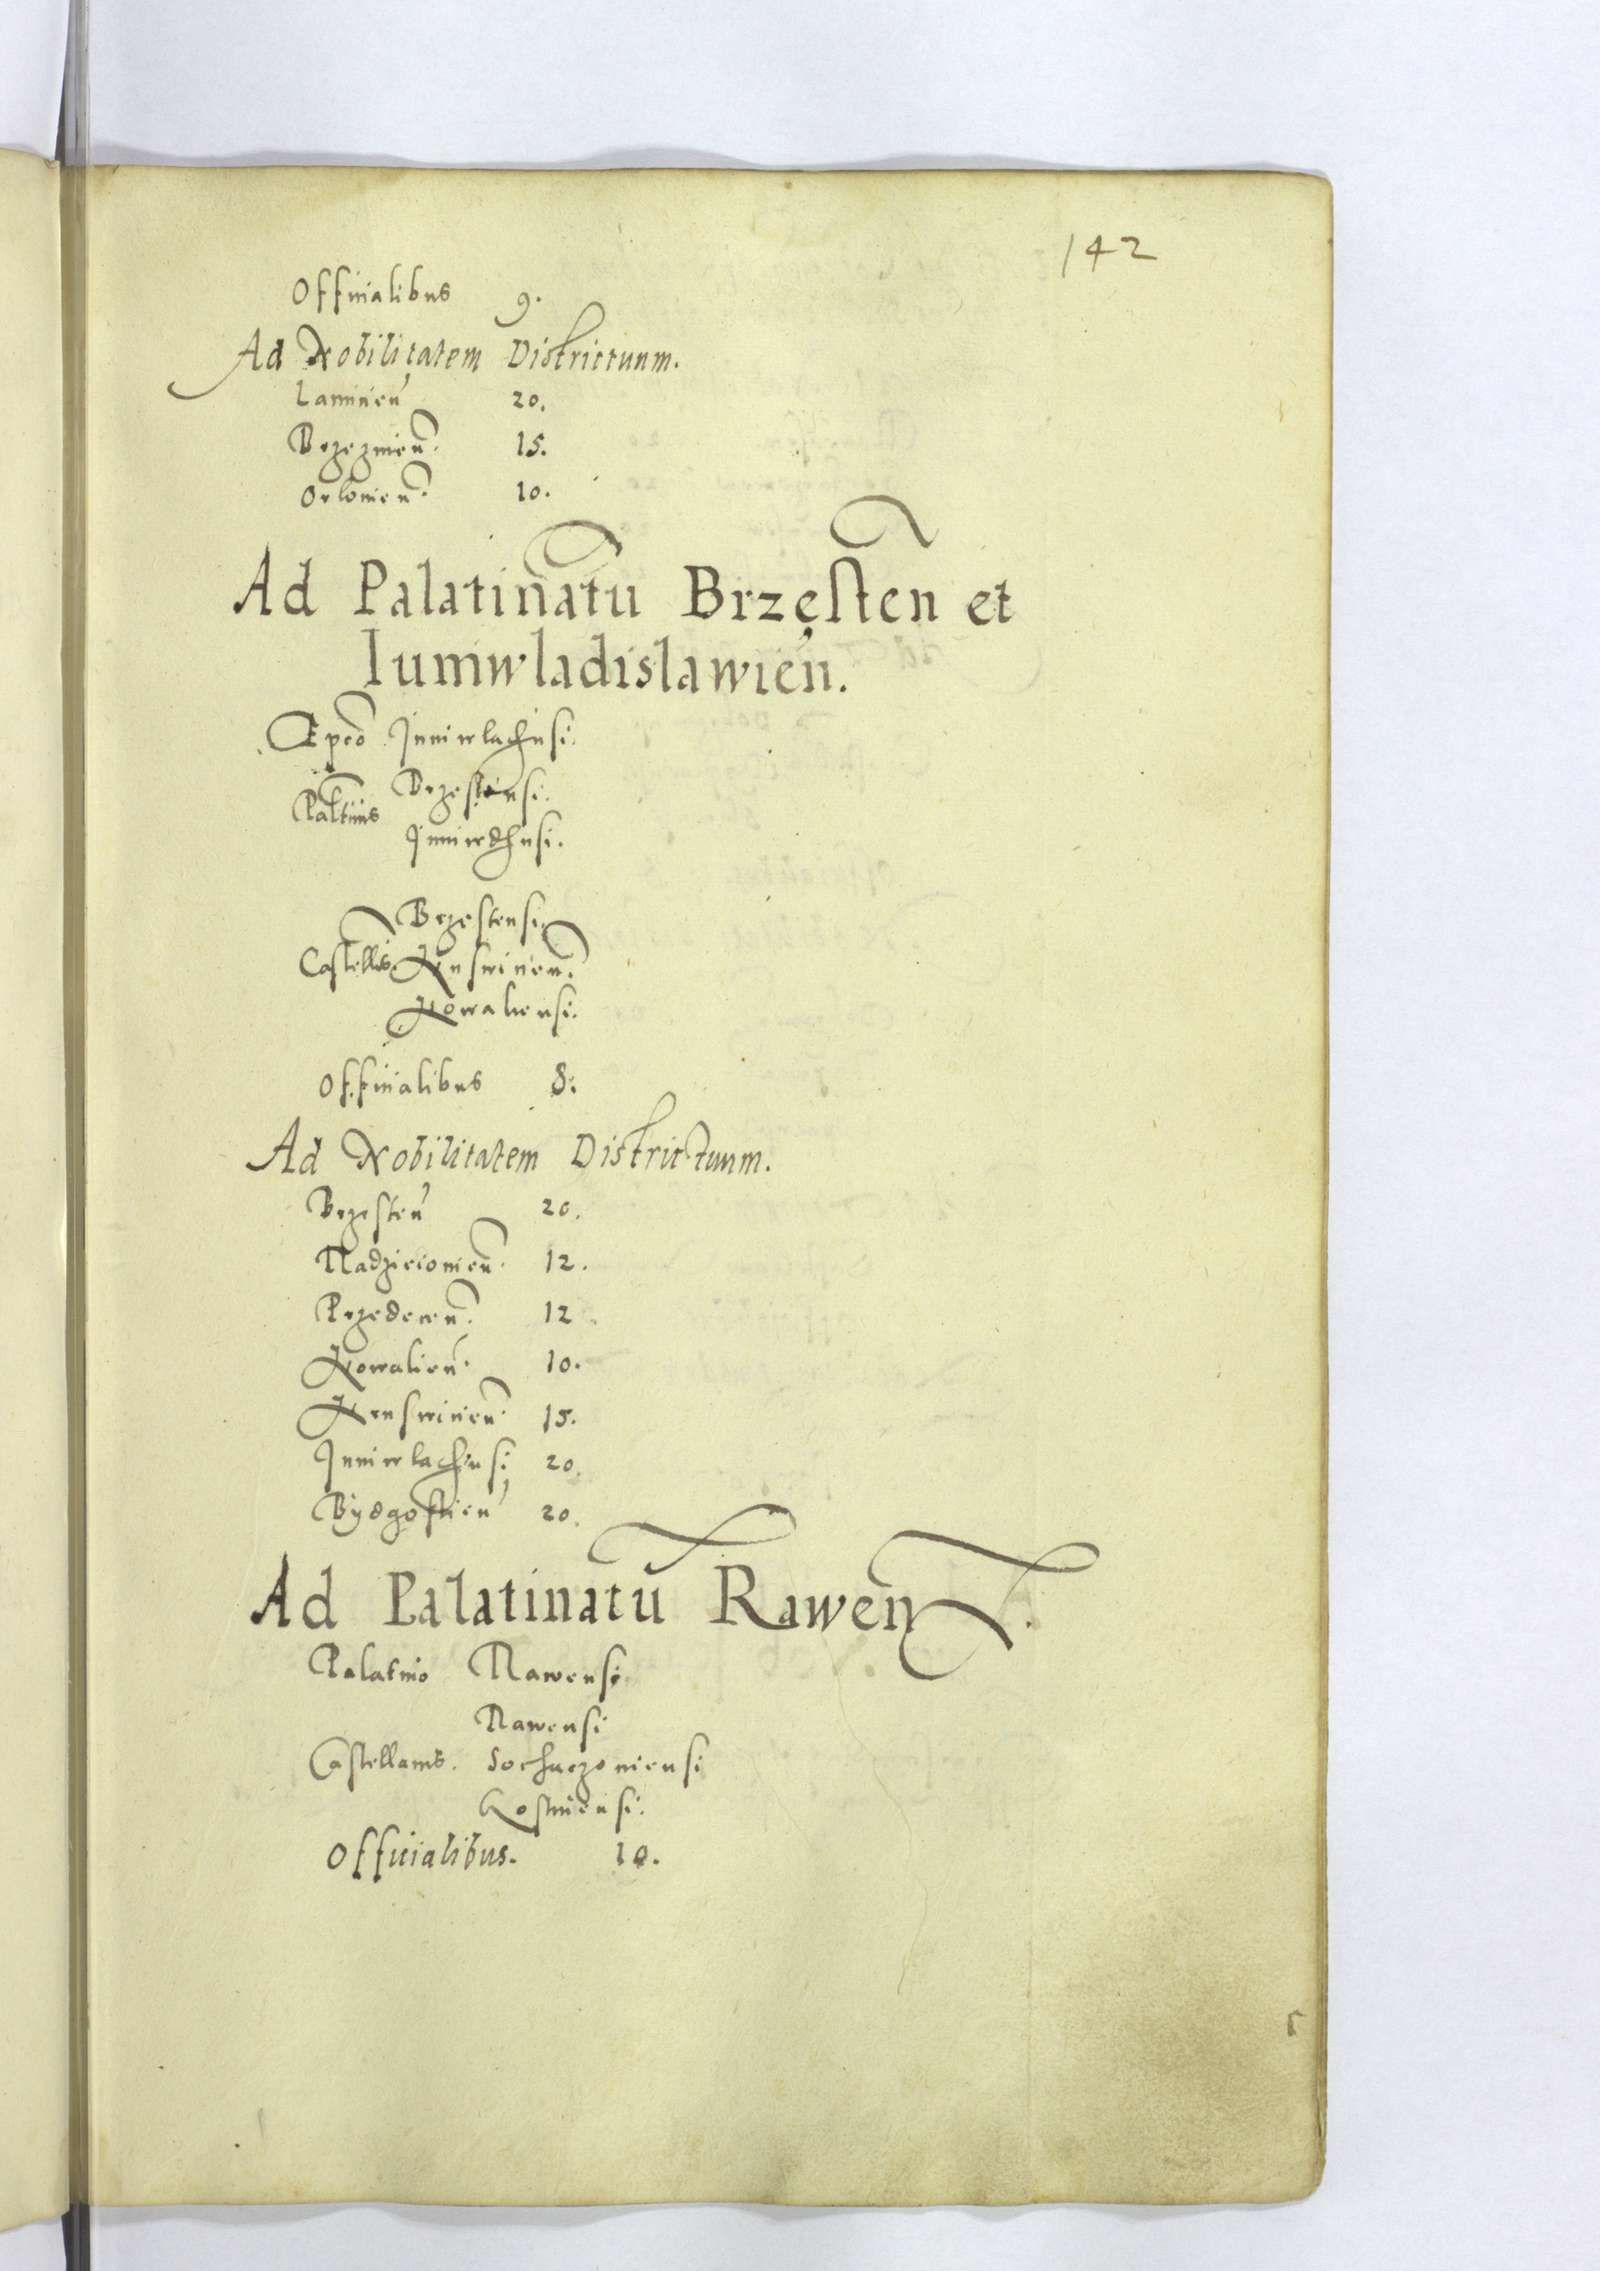 142
Officialibus 9.
Ad Nobilitatem Districtuum.
Lancicien 20.
Brzezinien. 15.
Orlovien. 10.
Ad Palatinatū Brzesten et
Iuniwladislawien.
Epco Juniwladnsi.
Brzestensi.
Paltinis
Juniwdnsi.
Brzestensi.
Castellis. Kruswicien.
Kowaliensi.
Officialibus 8.
Ad Nobilitatem Districtuum.
Brzesten 20.
Radzieiovien. 12.
Przedecen. 12
Kowalien. 10.
Kruswicien. 15.
Juniwladnsi 20.
Bydgostien 20.
Ad Palatinatū Rawen.
Palatino Rawensi
Rawensi
Castellanis. Sochaczoviensi
Gostinensi.
Officialibus. 10.